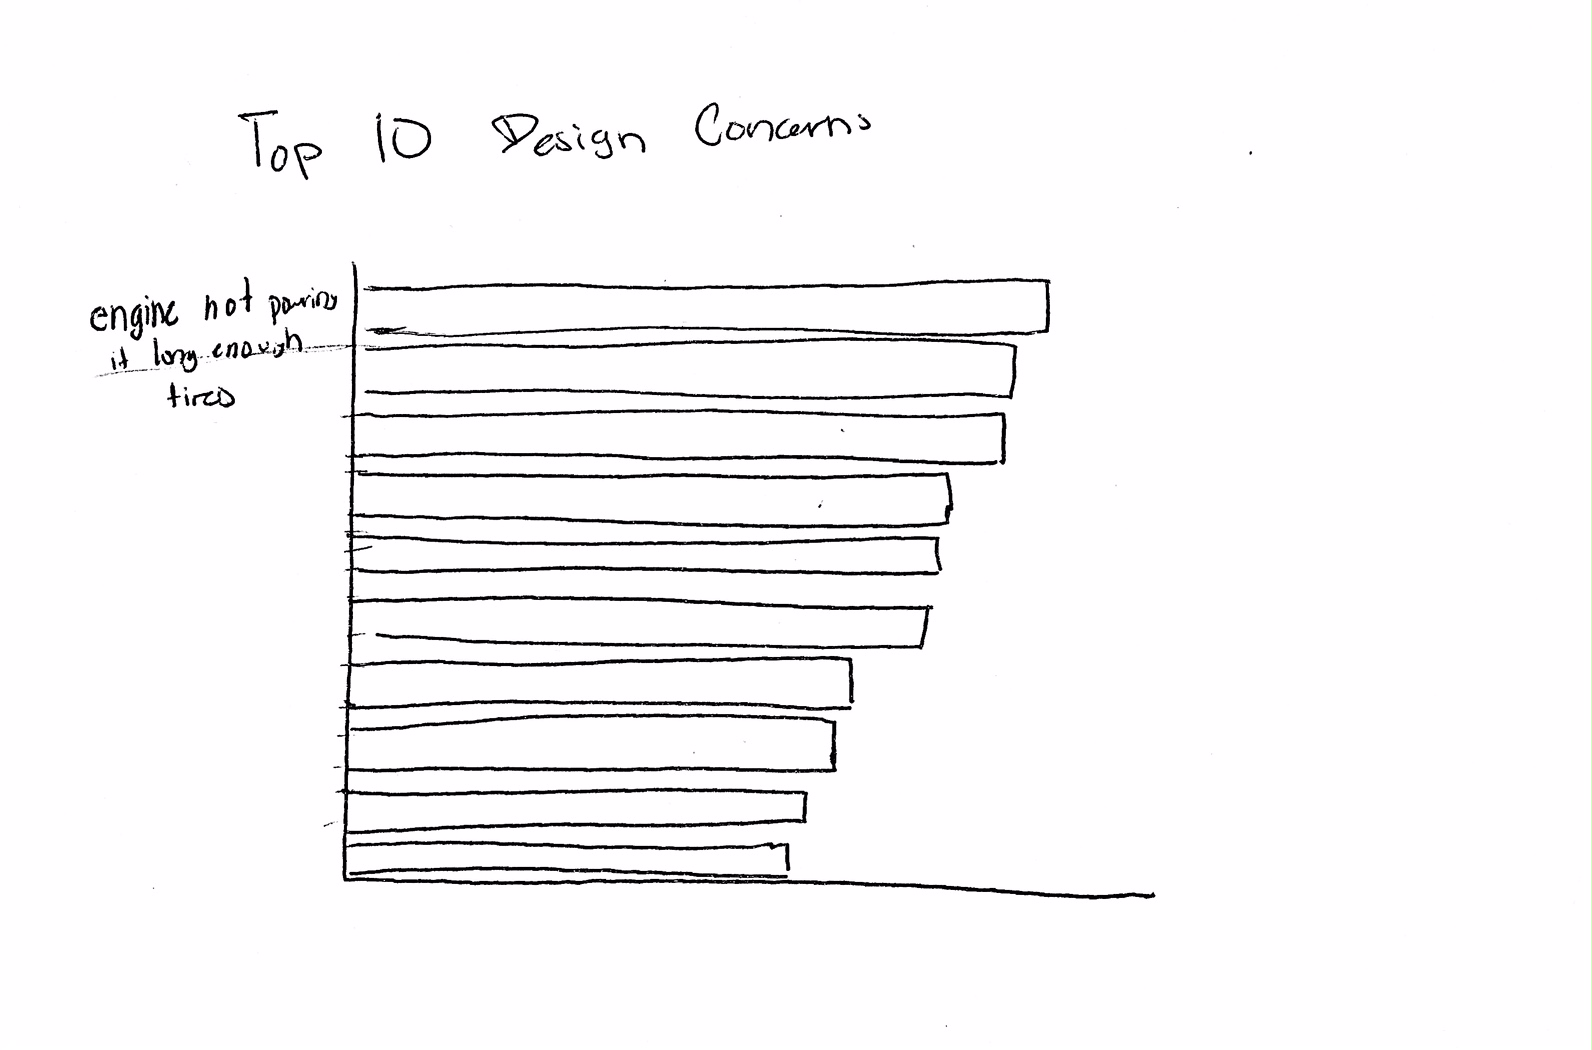 Top 10 Design Concerns
engine not powering
it long enough
tires